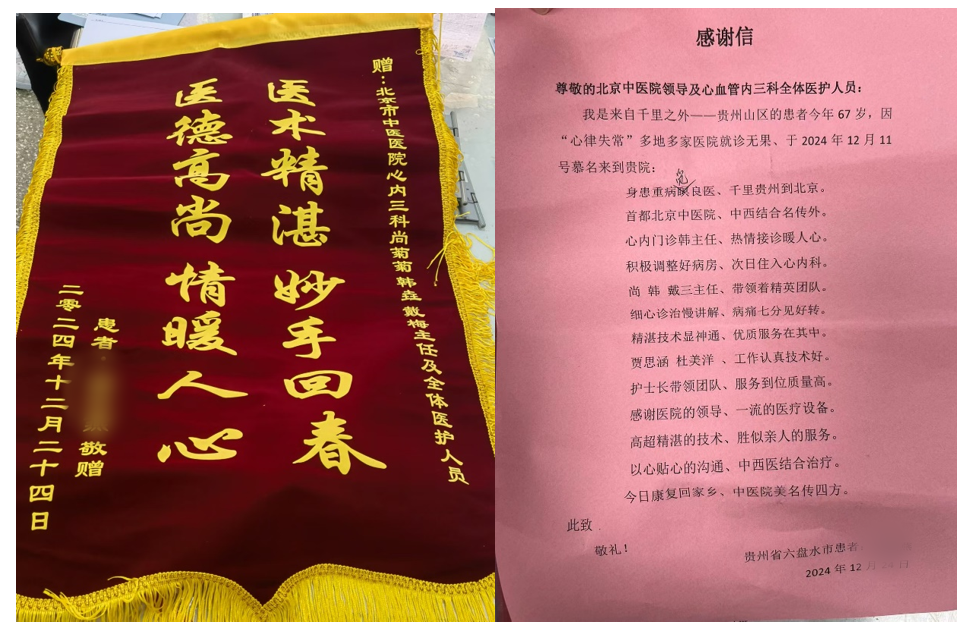 赠：北京市中医医院心内三科尚菊菊韩垚戴梅主任及全体医护人员
医术精湛 妙手回春
医德高尚 情暖人心
患者
敬赠
二零二四年十二月二十四日
感谢信
尊敬的北京中医院领导及心血管内三科全体医护人员：
我是来自千里之外——贵州山区的患者今年 67 岁，因
“心律失常”多地多家医院就诊无果、于 2024 年 12 月 11
号慕名来到贵院：
身患重病觅良医、千里贵州到北京。
首都北京中医院、中西结合名传外。
心内门诊韩主任、热情接诊暖人心。
积极调整好病房、次日住入心内科。
尚 韩 戴三主任、带领着精英团队。
细心诊治慢讲解、病痛七分见好转。
精湛技术显神通、优质服务在其中。
贾思涵 杜美洋 、工作认真技术好。
护士长带领团队、服务到位质量高。
感谢医院的领导、一流的医疗设备。
高超精湛的技术、胜似亲人的服务。
以心贴心的沟通、中西医结合治疗。
今日康复回家乡、中医院美名传四方。
此致
敬礼！
贵州省六盘水市患者
2024 年 12 月